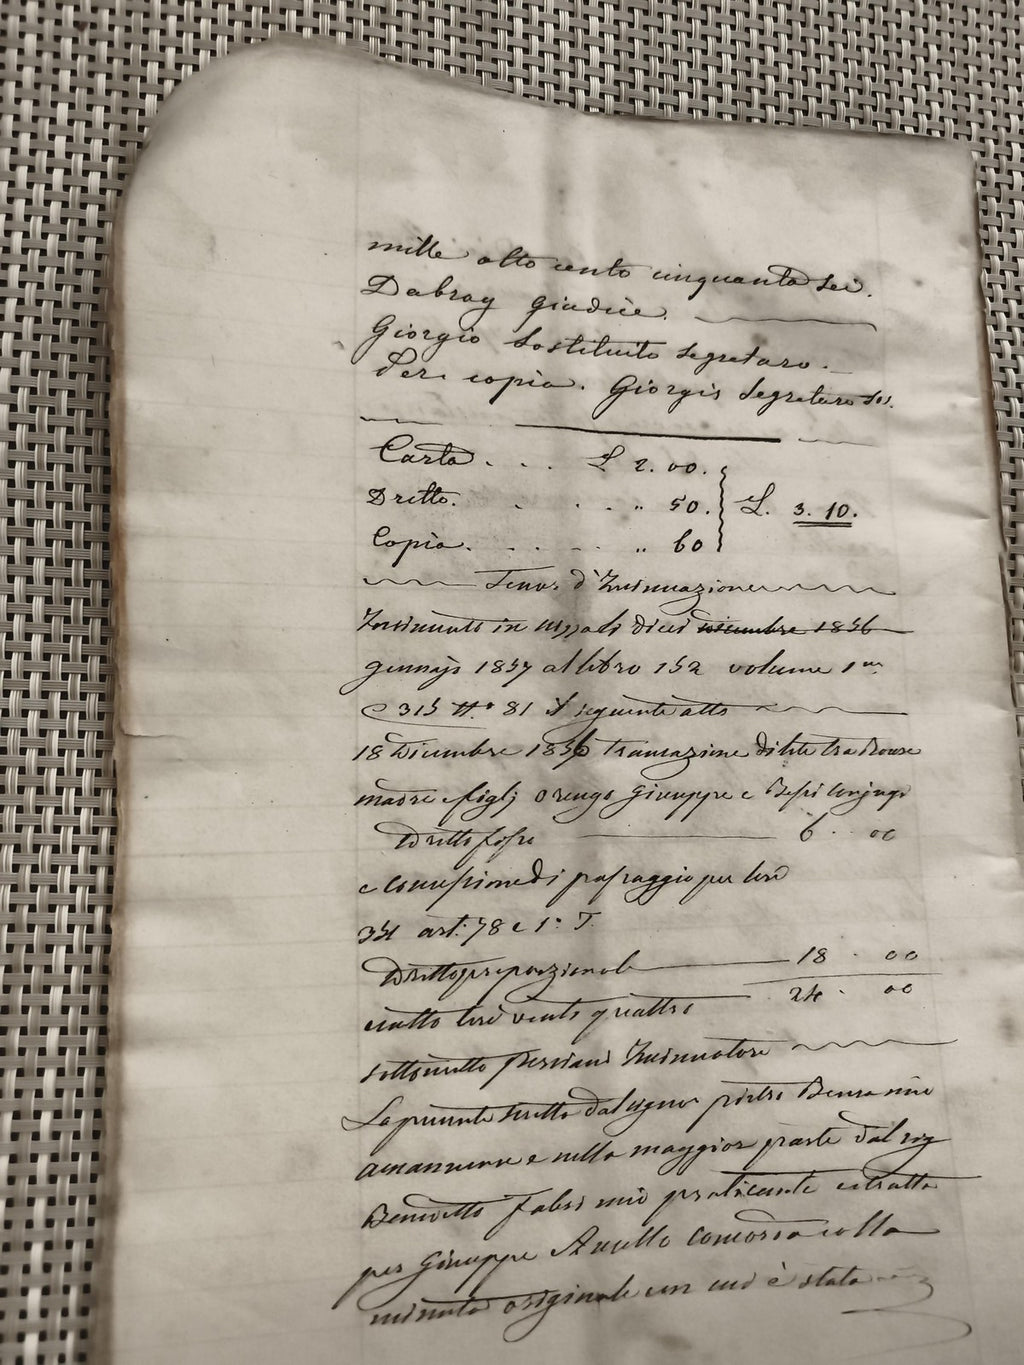 mille otto cento cinquanta sei.
Dabray giudice.
Giorgio Sostituito Segretaro.
Per copia. Giorgis Segretaro Sos.
Carta . . . £ 2. 00.
Dritto. . . . " 50. £. 3. 10.
Copia. . . . " 60
Tenor d'Insinuazione
Insinuato in dieci decembre 1856
gennajo 1857 al libro 152 volume 1
C 315 N.° 81 il seguente atto
18 Dicembre 1856 transazione di lite tra
madre e figlj Orengo Giuseppe e conjugi
Dritto fisso 6 . 00
e concessione di passaggio per lire
art. 78 e 1°. T.
Dritto proporzionale 18 . 00
24 . 00
esatto lire venti quattro
sottoscritto Insinuatore
La presente scritta dal signor pietro Bensa mio
amanuense e nella maggior parte dal sig
Benedetto Fabri mio praticante estratta
per Giuseppe concorda colla
minuta originale con cui è stata